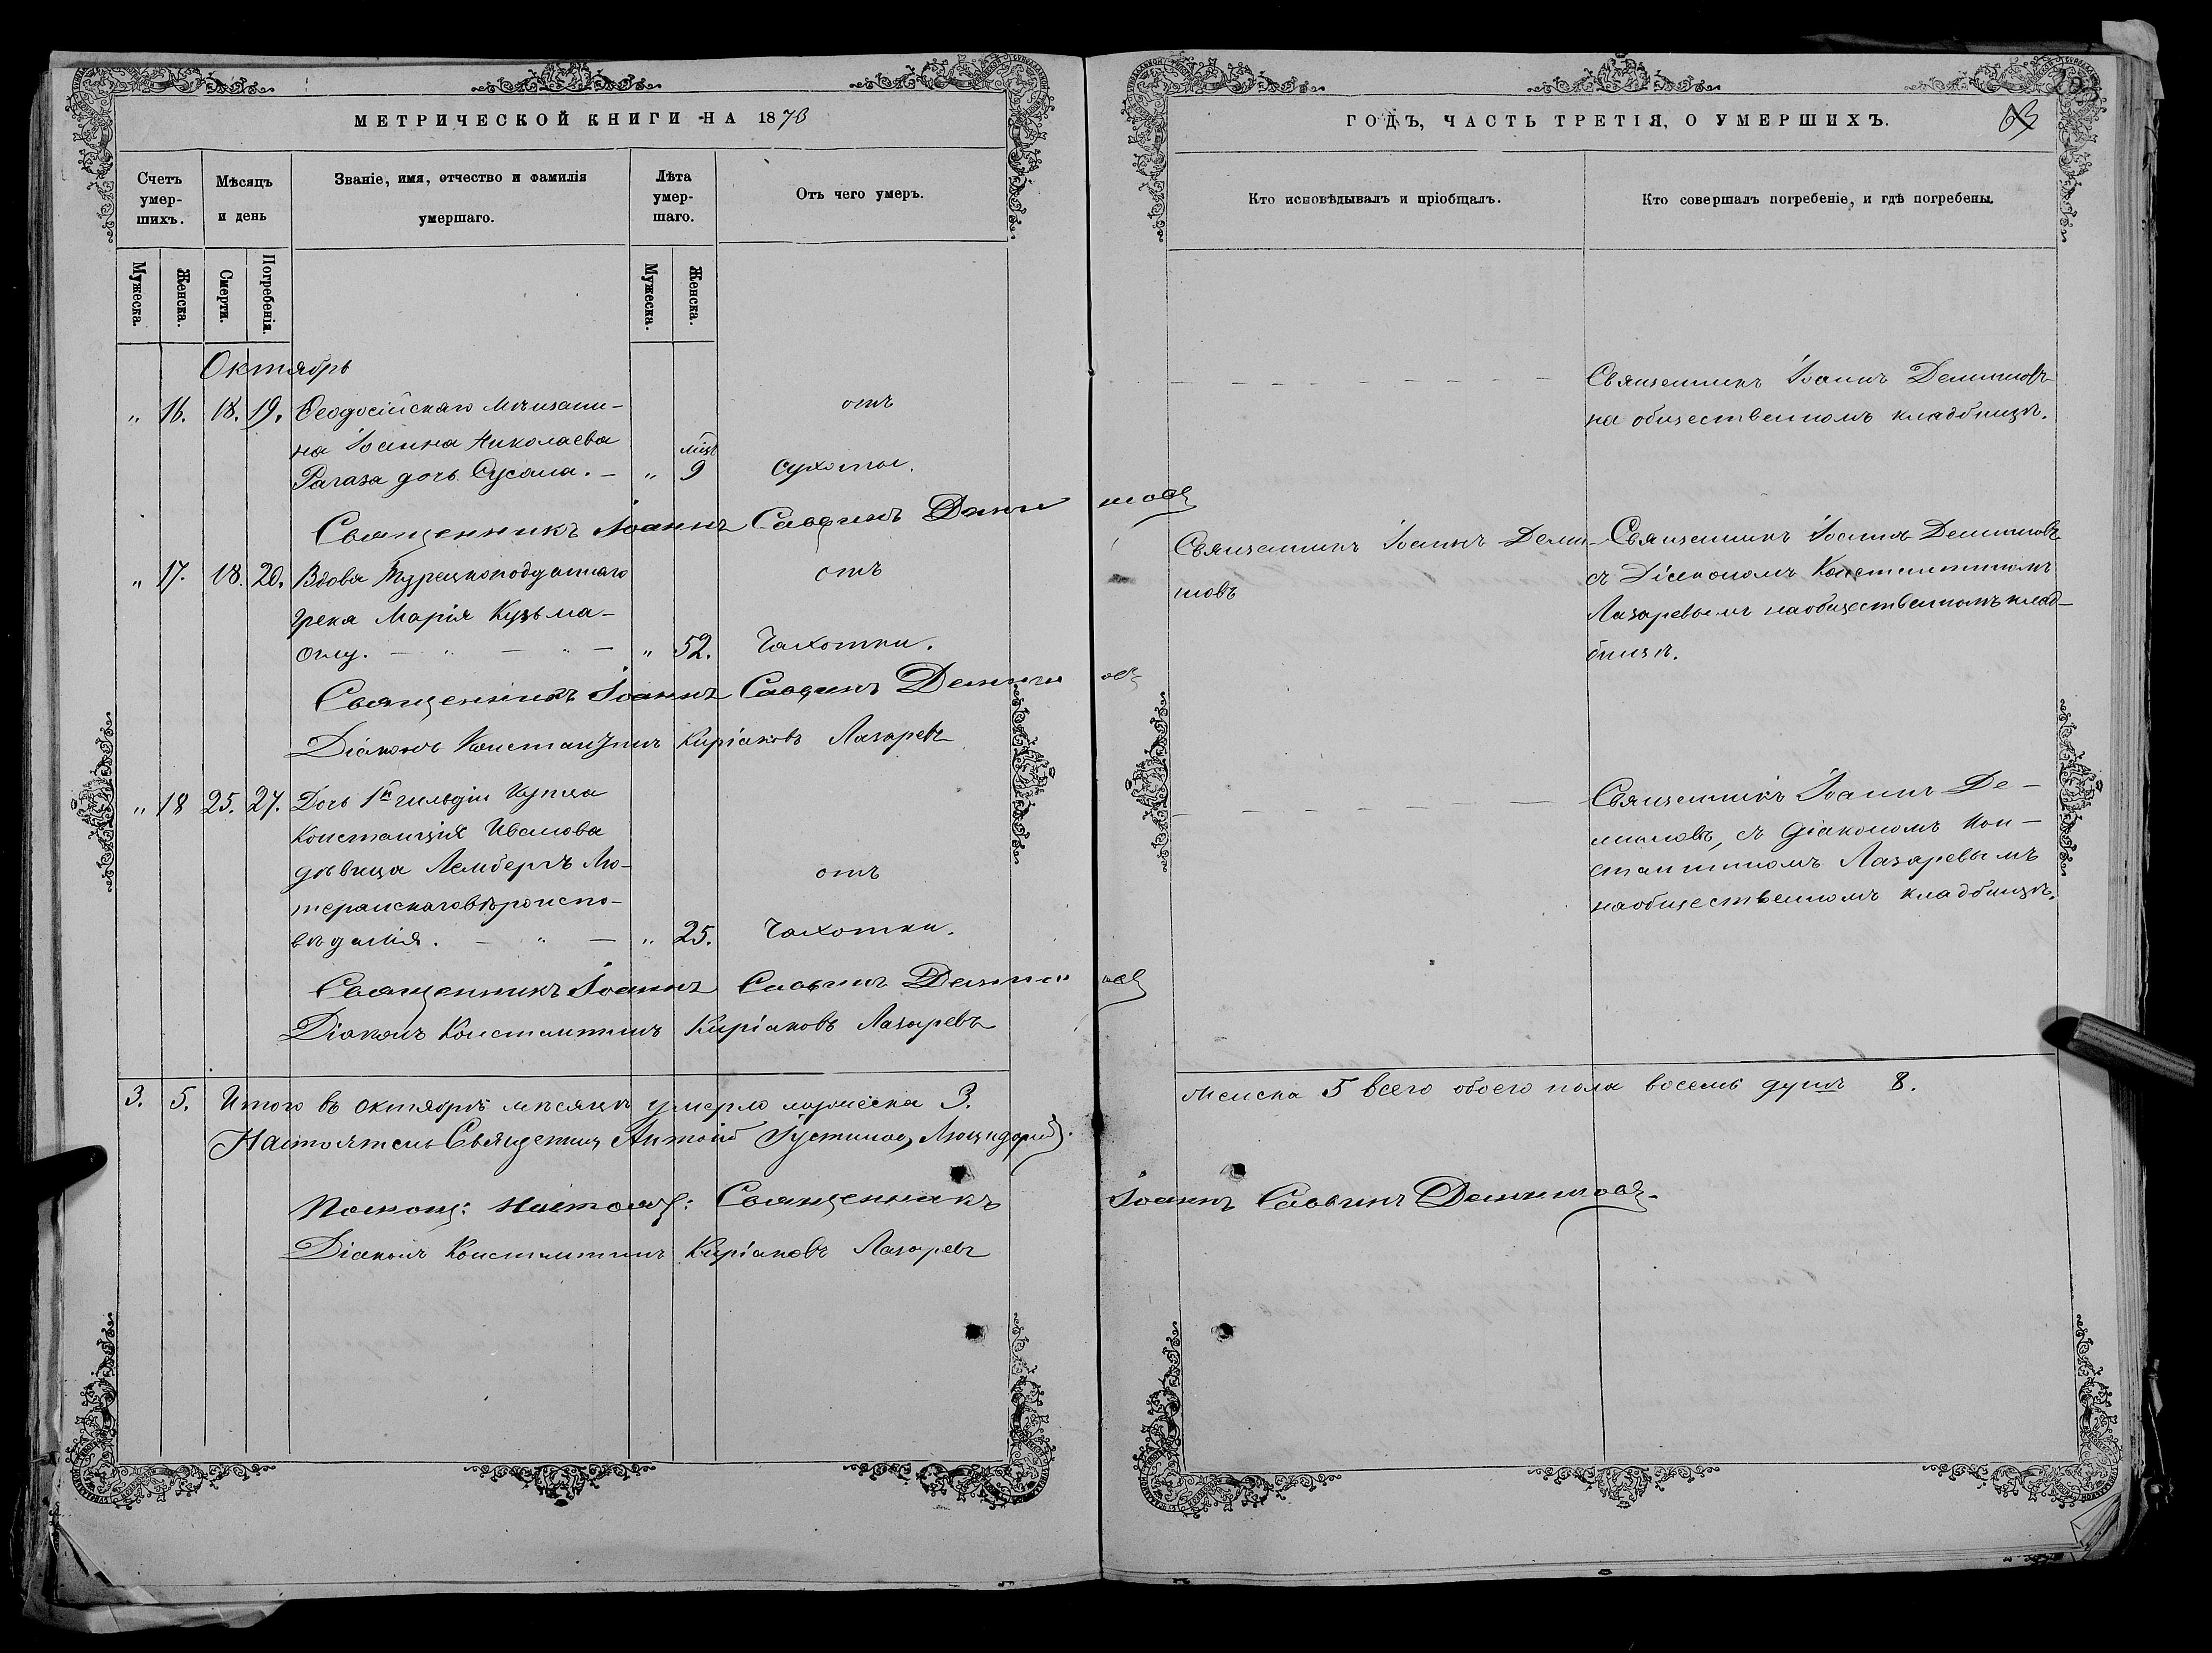 МЕТРИЧЕСКОЙ КНИГИ НА 1870
Счетъ умер-шихъ.
Мѣсяцъ и день
Званіе, имя, отчество и фамилія умершаго.
Лѣта умер-шаго.
Отъ чего умеръ.
Мужеска.
Женска.
Смерти.
Погребенія.
Мужеска.
Женска.
Октябрь
„ 16. 18. 19. Ѳеодосійскаго Мѣщани- отъ
на Іоанна Николаева мѣс.
Рагаза дочь Сусана. – „ 9 сухоты.
Священникъ Іоаннъ Саввинъ Демиловъ
„ 17. 18. 20. Вдова Турецкоподданнаго отъ
грека Марія Кузьма-
Оглу. – „ – „ – „ 52. Чахотки.
Священникъ Іоаннъ Саввинъ
Діаконъ Константинъ Киріаковъ Лазаревъ
„ 18 25. 27. Дочь 1й гильдіи Купца
Констанція Иванова
дѣвица Лембергъ Лю- отъ
теранскаго вѣроиспо-
вѣданія. – „ – „ 25. Чахотки.
Священникъ Іоаннъ Саввинъ
Діаконъ Константинъ Киріаковъ Лазаревъ
3. 5. Итого въ Октябрѣ мѣсяцѣ умерло мужеска 3.
Настоятель Священникъ Антоній
Помощ: Настоят: Священникъ
Діаконъ Константинъ Киріаковъ Лазаревъ
ГОДЪ, ЧАСТЬ ТРЕТІЯ, О УМЕРШИХЪ.
63
Кто исповѣдывалъ и пріобщалъ.
Кто совершалъ погребеніе, и гдѣ погребены.
Священникъ Іоаннъ
на общественномъ кладбищѣ.
Священникъ Іоаннъ
Священникъ Іоаннъ
съ Діакономъ Константиномъ
Лазаревымъ на общественномъ клад-
бищѣ.
Священникъ Іоаннъ Де-
съ Діакономъ Кон-
стантиномъ Лазаревымъ
на общественномъ кладбищѣ.
Женска 5 всего обоего пола восемь душъ 8.
Іоаннъ Саввинъ